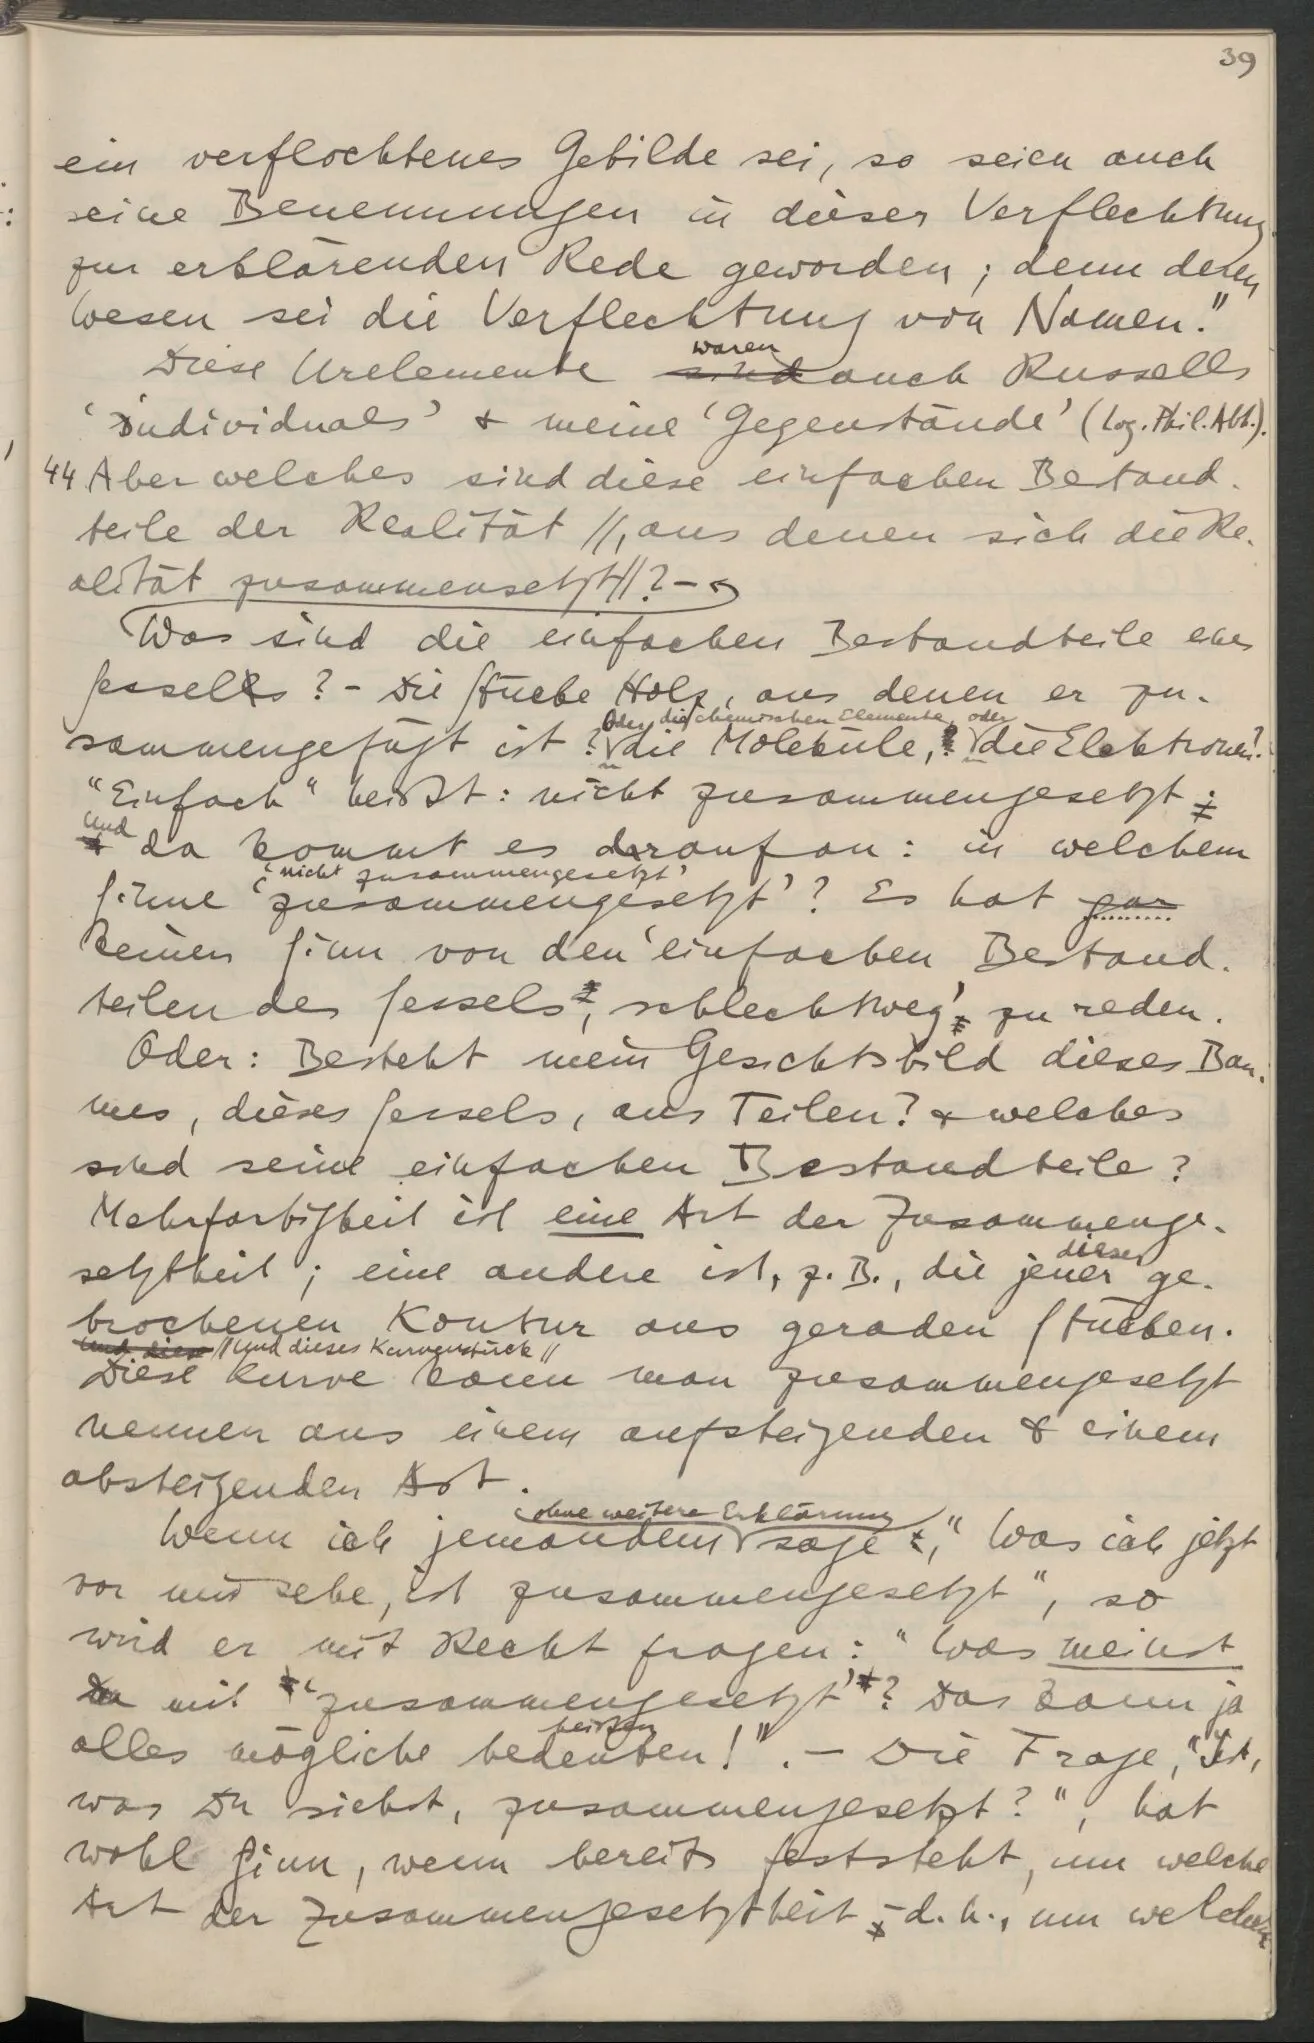 39
ein verflochtenes Gebilde sei, so seien auch
seine Benennungen in dieser Verflechtung
zur erklärenden Rede geworden; denn deren
Wesen sei die Verflechtung von Namen."
waren
Diese Urelemente sind auch Russells
'individuals' & meine 'Gegenstände' (Log. Phil. Abh.).
44 Aber welches sind diese einfachen Bestand-
teile der Realität //, aus denen sich die Re-
alität zusammensetzt//? –
Was sind die einfachen Bestandteile eines
Sessels? – Die Stücke Holz, aus denen er zu-
Oder die chemischen Elemente, oder
sammengefügt ist? die Moleküle, die Elektronen?
"Einfach" heißt: nicht zusammengesetzt;
und
da kommt es darauf an: in welchem
'nicht zusammengesetzt'
Sinne 'zusammengesetzt'? Es hat gar
keinen Sinn von den 'einfachen Bestand-
teilen des Sessels, schlechtweg', zu reden.
Oder: Besteht mein Gesichtsbild dieses Bau-
mes, dieses Sessels, aus Teilen? & welches
sind seine einfachen Bestandteile?
Mehrfarbigkeit ist eine Art der Zusammenge-
dieser
setztheit; eine andere ist, z.B., die jener ge-
brochenen Kontur aus geraden Stücken.
Und diese //Und dieses Kurvenstück//
Diese Kurve kann man zusammengesetzt
nennen aus einem aufsteigenden & einem
absteigenden Ast.
ohne weitere Erklärung
Wenn ich jemandem sage, "Was ich jetzt
vor mir sehe, ist zusammengesetzt", so
wird er mit Recht fragen: "Was meinst
Du mit 'zusammengesetzt'? Das kann ja
heißen
alles mögliche bedeuten!". – Die Frage, "Ist,
was Du siehst, zusammengesetzt?", hat
wohl Sinn, wenn bereits feststeht, um welche
Art der Zusammengesetztheit – d.h., um welchen